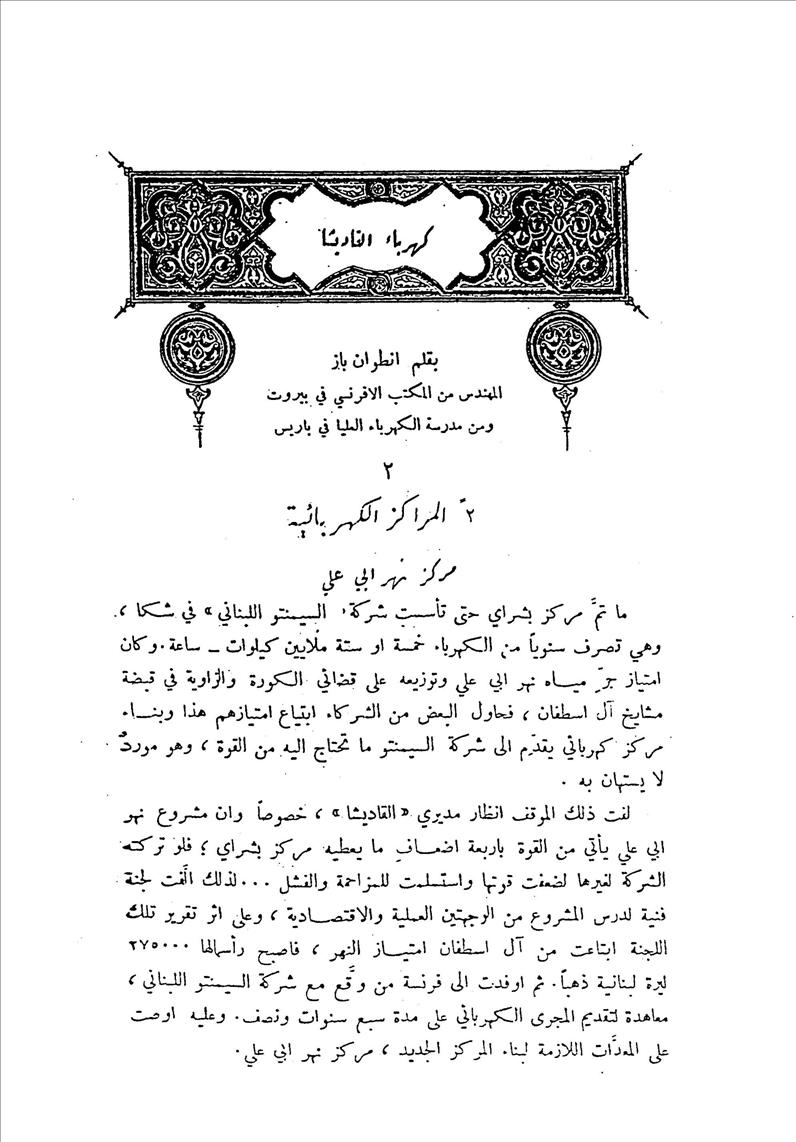 كهرباء القاديشا
بقلم انطوان باز
المهندس من المكتب الافرنسي في بيروت
ومن مدرسة الكهرباء العليا في باريس
٢
٢ً المراكز الكهربائية
مركز نهر ابي علي
ما تمَّ مركز بشراي حتى تأسست شركة « السيمنتو اللبناني » في شكا ،
وهي تصرف سنوياً من الكهرباء خمسة او ستة ملايين كيلوات ــ ساعة. وكان
امتياز جرّ مياه نهر ابي علي وتوزيعه على قضائي الكورة والزاوية في قبضة
مشايخ آل اسطفان ، فحاول البعض من الشركاء ابتياع امتيازهم هذا وبناء
مركز كهربائي يقدّم الى شركة السيمنتو ما تحتاج اليه من القوة ، وهو موردٌ
لا يستهان به .
لفت ذلك الموقف انظار مديري «القاديشا» ، خصوصاً وان مشروع نهر
ابي علي يأتي من القوة باربعة اضعاف ما يعطيه مركز بشراي ؛ فلو تركته
الشركة لغيرها لضعفت قوتها واستسلمت للمزاحمة والفشل ... لذلك الّفت لجنة
فنية لدرس المشروع من الوجهتين العملية والاقتصادية ، وعلى اثر تقرير تلك
اللجنة ابتاعت من آل اسطفان امتياز النهر ، فاصبح رأسمالها ٢٧٥٠٠٠
ليرة لبنانية ذهباً. ثم اوفدت الى فرنسة من وقَّع مع شركة السيمنتو اللبناني ،
معاهدة لتقديم المجرى الكهربائي على مدة سبع سنوات ونصف. وعليه اوصت
على المعدَّات اللازمة لبناء المركز الجديد ، مركز نهر ابي علي.